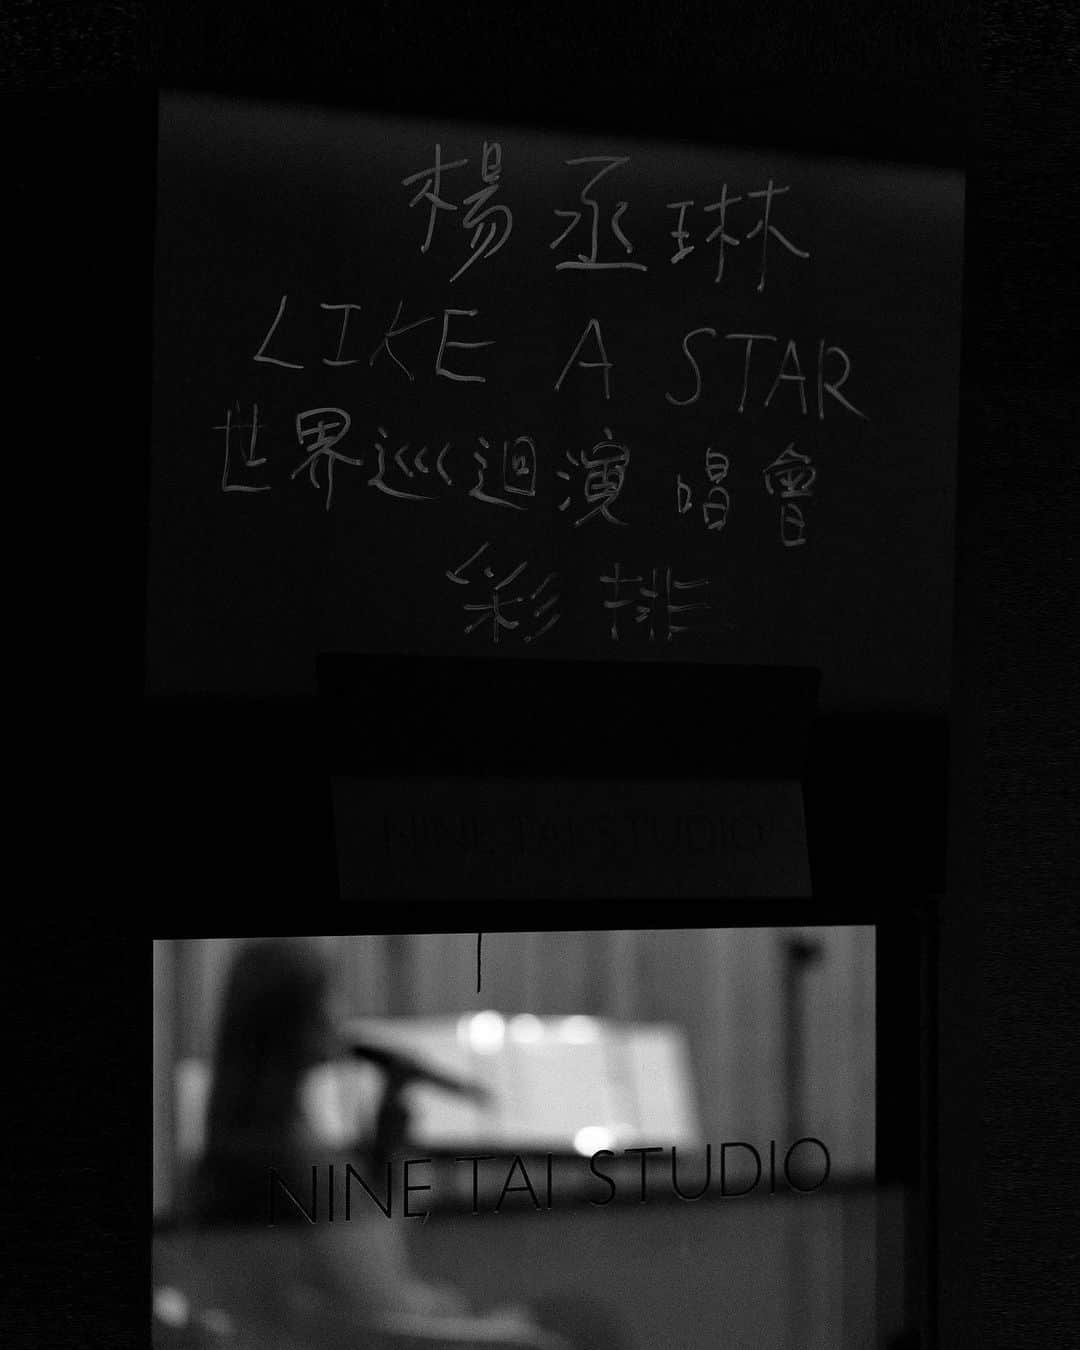 楊丞琳
LIKE A STAR
世界巡迴演唱會
彩排
NINE TAI STUDIO
NINE TAI STUDIO